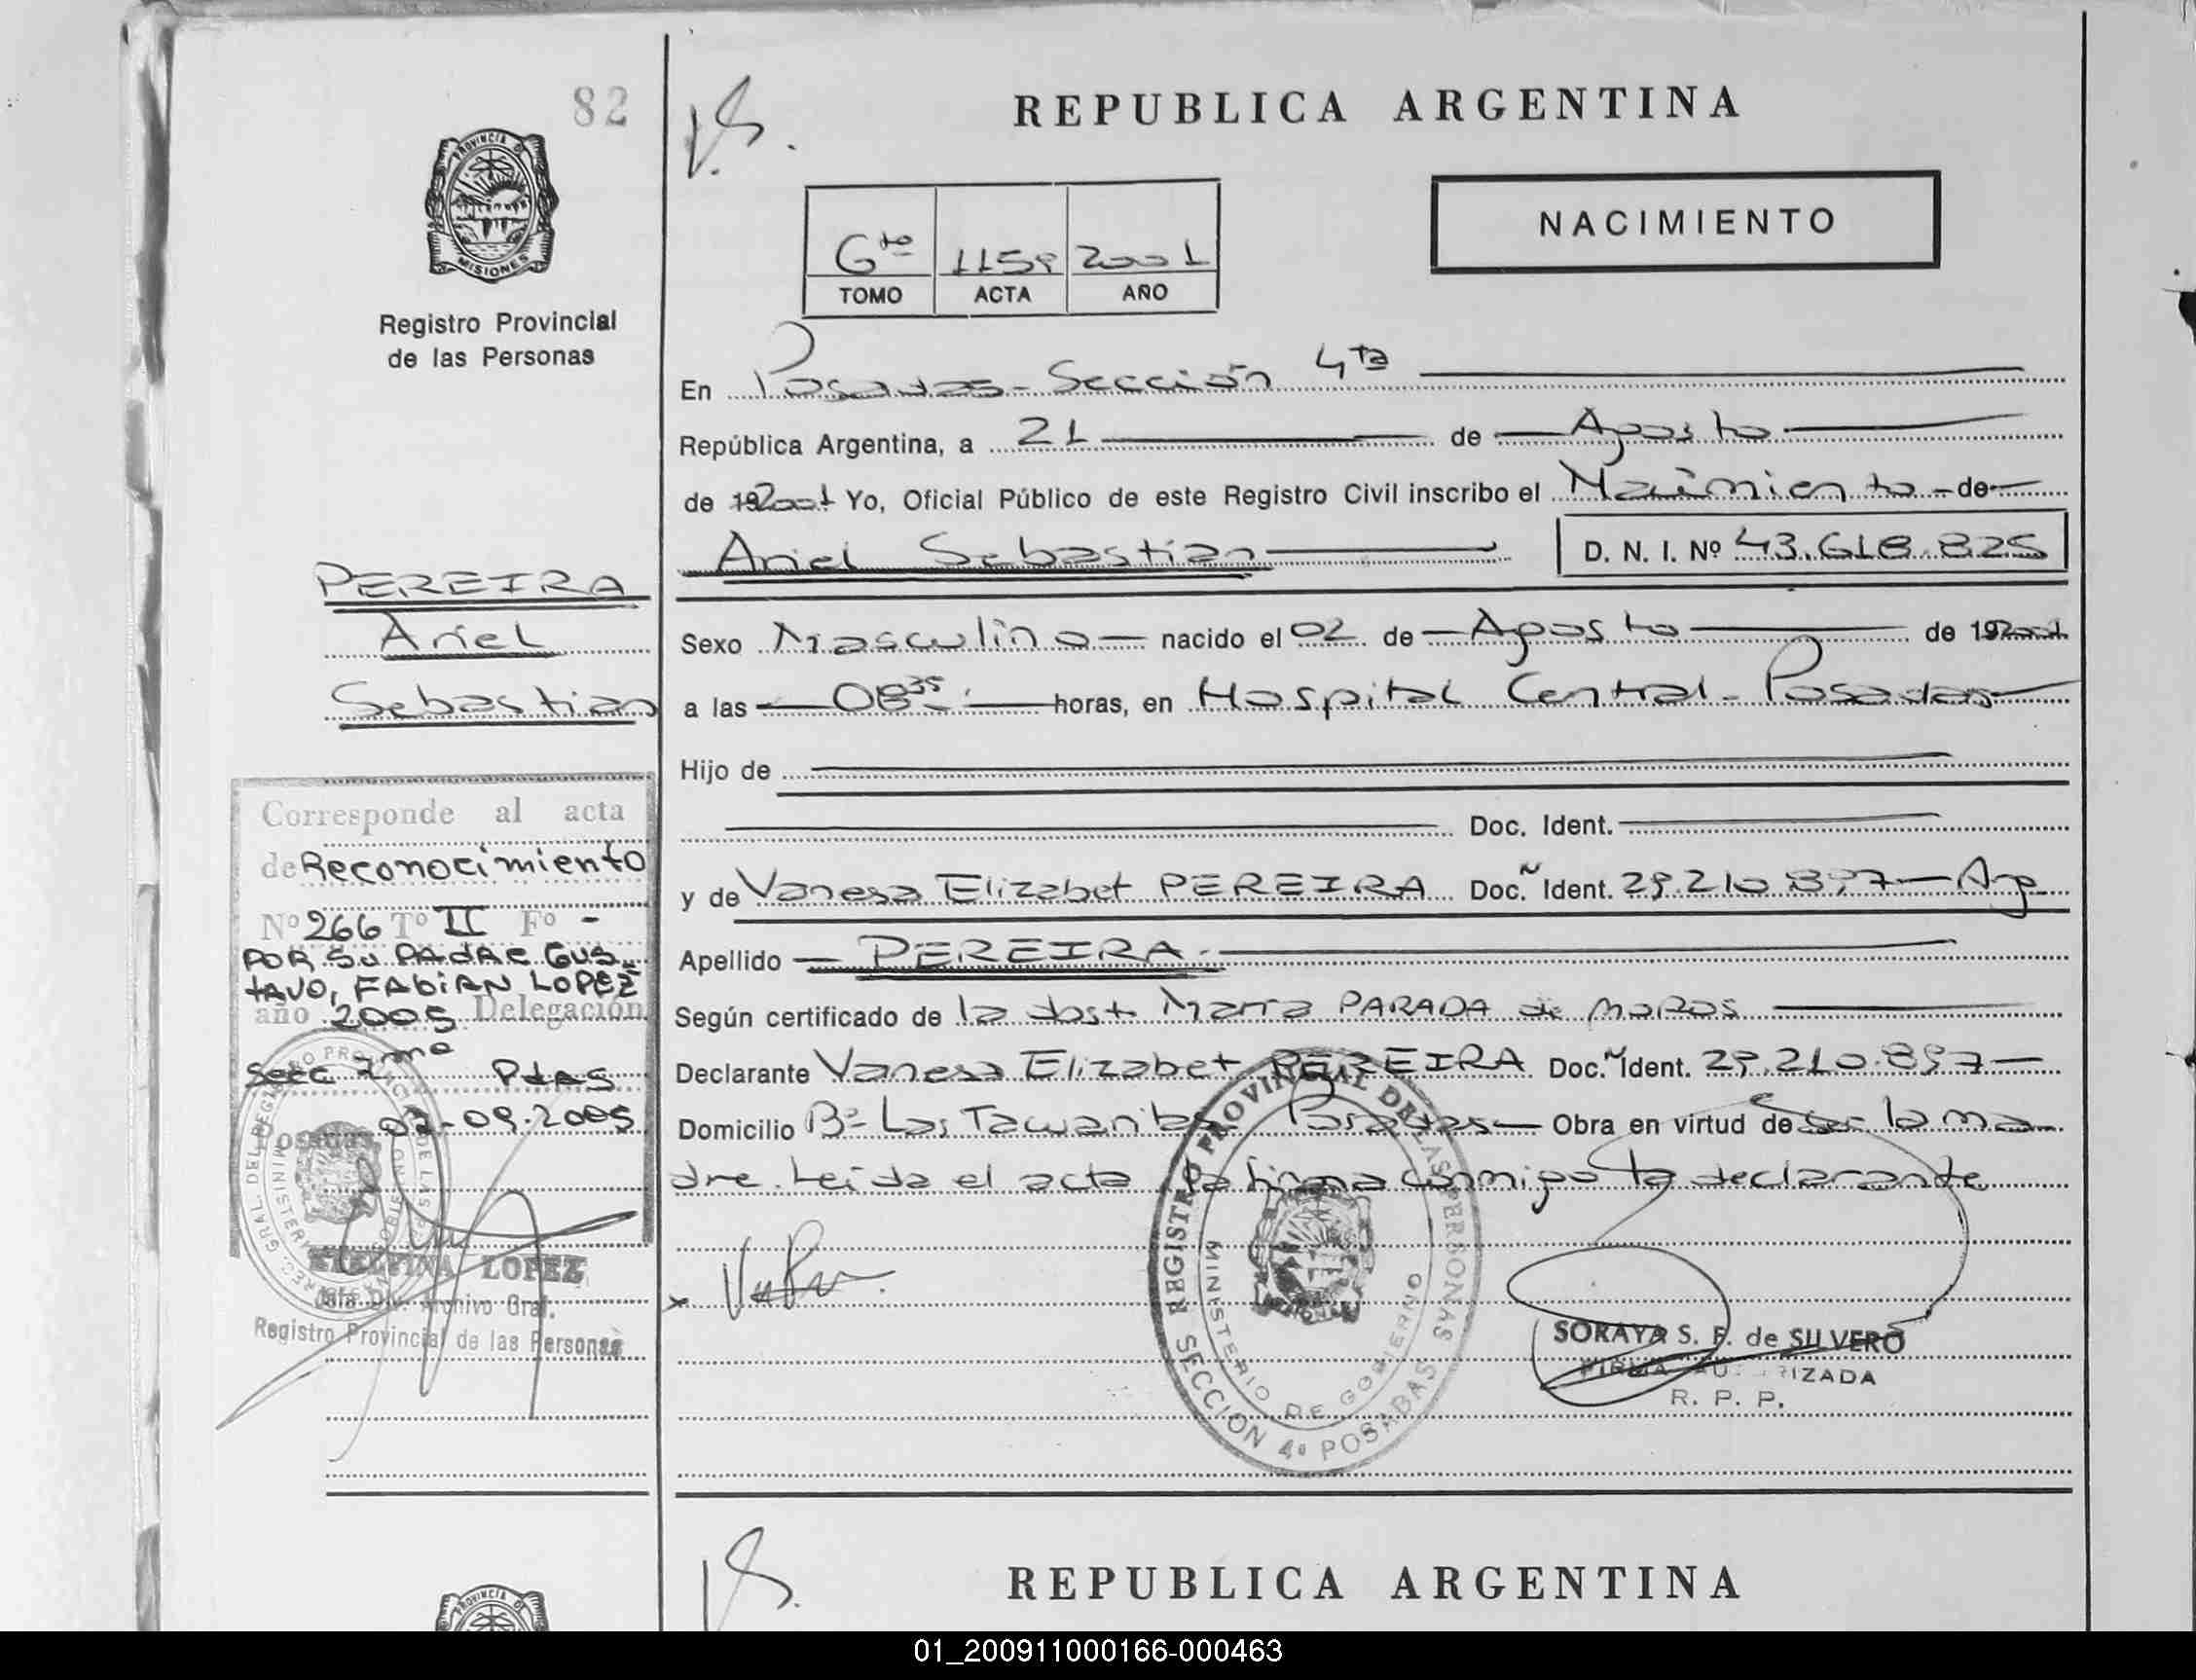 82
REPUBLICA ARGENTINA
NACIMIENTO
PROVINCIA D
MISIONES
Registro Provincial
de las Personas
6to 1159 2001
TOMO ACTA AÑO
En Posadas - Sección 4ta
República Argentina, a 21 de Agosto
de 192001 Yo, Oficial Público de este Registro Civil inscribo el Nacimiento - de
Ariel Sebastian D. N. I. Nº 43.618.825
PEREIRA
Ariel
Sebastian
Sexo Masculino nacido el 02 de Agosto de 192001
a las 08 35 horas, en Hospital Central - Posadas
Hijo de
Doc. Ident.
y de Vanesa Elizabet PEREIRA Doc. N Ident. 29.210.897 - Arg
Apellido PEREIRA
Según certificado de la obst. Marta PARADA de MOROS
Declarante Vanesa Elizabet PEREIRA Doc. N Ident. 29.210.897
Domicilio Bº Las Tacuaritas Posadas Obra en virtud de ser la ma
dre. Leida el acta la firma conmigo la declarante
Corresponde al acta
de Reconocimiento
Nº 266 Tº II Fº -
POR SU PADRE GUS
TAVO, FABIAN LOPEZ
año 2005 Delegación
Secc 7ma Pdas
Posadas 07-09-2005
LOPEZ
Jefa Div. Archivo Gral.
Registro Provincial de las Personas
REGISTRO PROVINCIAL DE LAS PERSONAS
MINISTERIO DE GOBIERNO
SECCION 4ª POSADAS
SORAYA S. F. de SILVERO
FIRMA AUTORIZADA
R. P. P.
REPUBLICA ARGENTINA
PROVINCIA
01_200911000166-000463